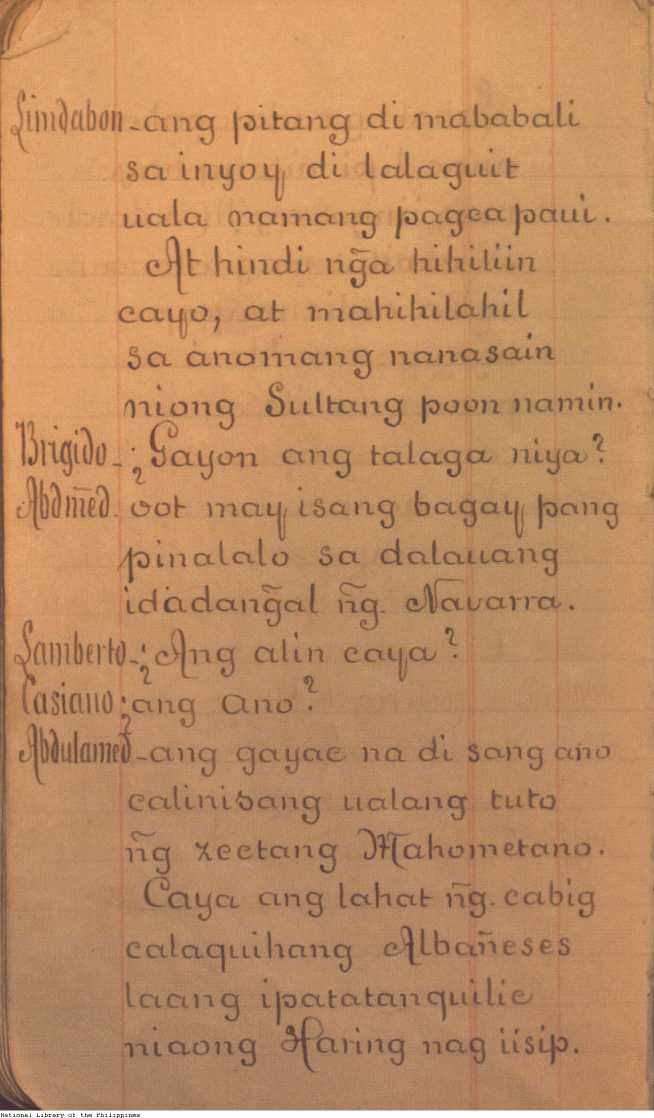 Limdabon - ang pitang di mababali
sa inyoy di lalaguit
uala namang pagcapaui.
At hindi ng̃a hihiliin
cayo, at mahihilahil
sa anomang nanasain
niong Sultang poon namin.
Brigido - ¿Gayon ang talaga niya?
Abdmed. oot may isang bagay pang
pinalalo sa dalauang
idadang̃al ñg. Navarra.
Lamberto - ¿Ang alin caya?
Casiano ¿ang ano?
Abdulamed - ang gayac na di sang ano
calinisang ualang tuto
ñg zeetang Mahometano.
Caya ang lahat ñg. cabig
calaquihang Albañeses
laang ipatatanquilic
niaong Haring nag iisip.
National Library of the Philippines